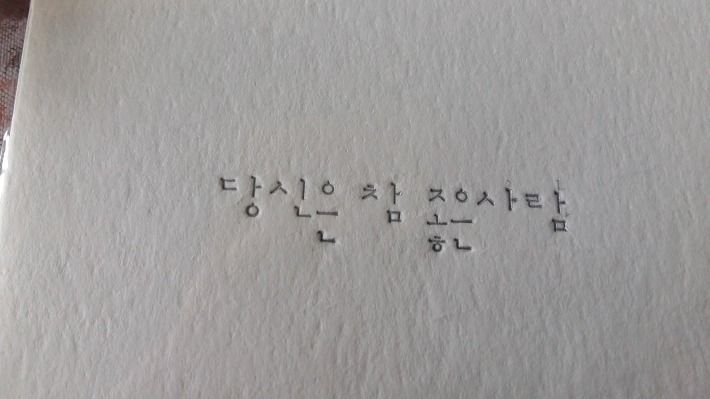 당신은 참 좋은사람